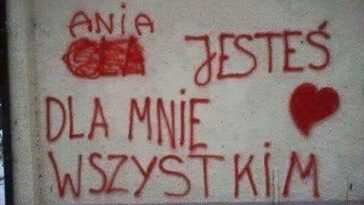 ANIA
JESTEŚ
DLA MNIE
WSZYSTKIM